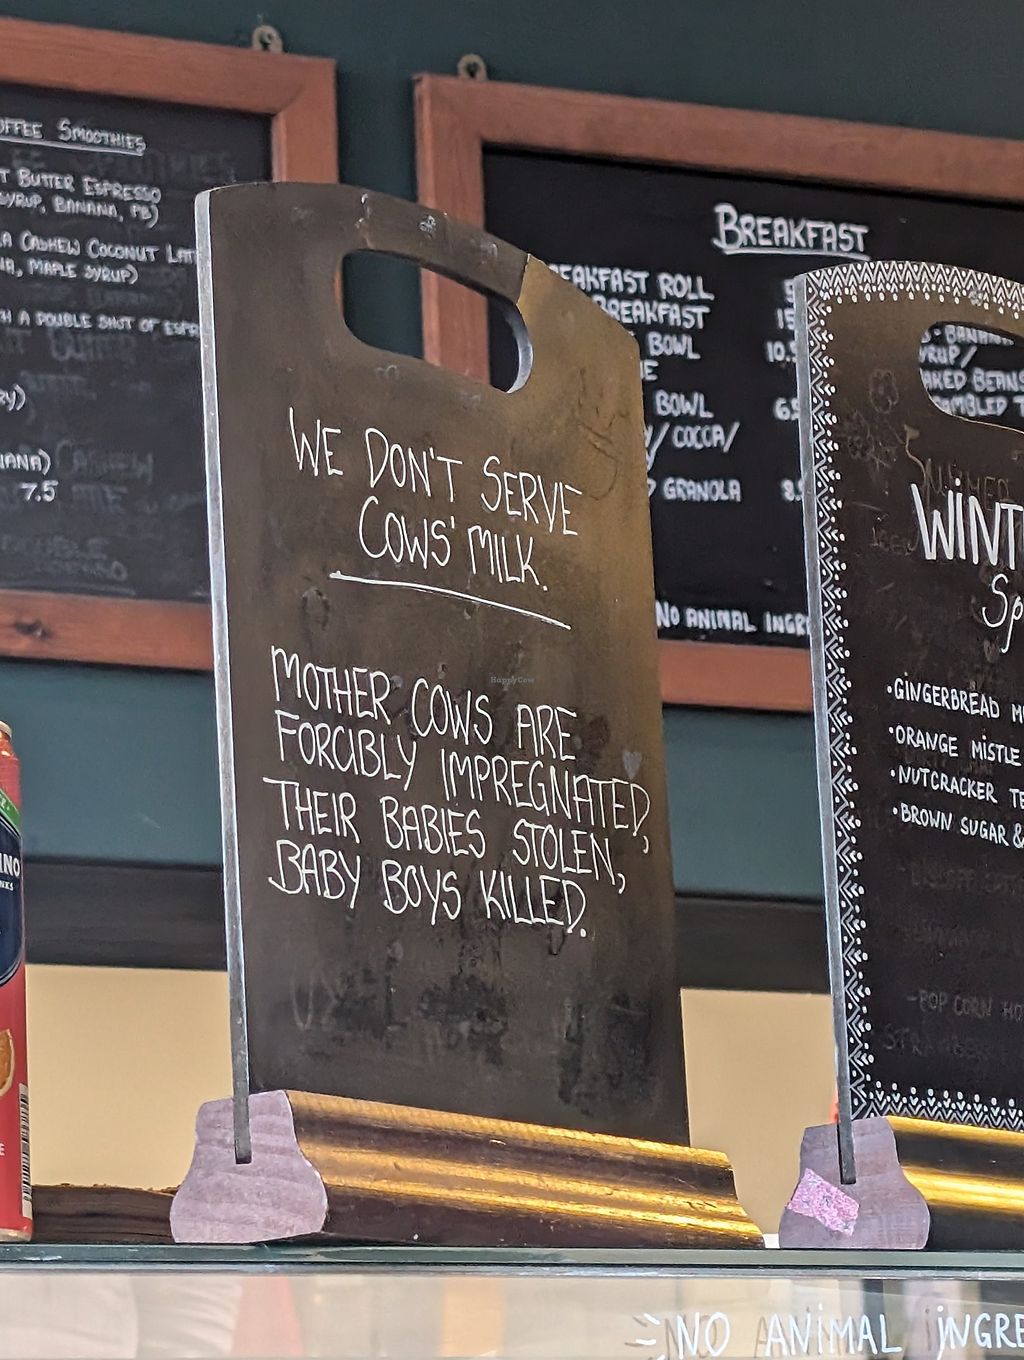 OFFEE SMOOTHIES
T BUTTER ESPRESSO
SYRUP, BANANA, PB)
A CASHEW COCONUT LAT
NA, MAPLE SYRUP)
H A DOUBLE SHOT OF ESPR
RY)
NANA)
7.5
BREAKFAST
EAKFAST ROLL
BREAKFAST
BOWL 10.5
BOWL
/COCCA/
GRANOLA
NO ANIMAL INGR
WE DON'T SERVE
COWS' MILK.
MOTHER COWS ARE
FORCIBLY IMPREGNATED,
THEIR BABIES STOLEN,
BABY BOYS KILLED.
HappyCow
BANANA
YRUP/
AKED BEANS
WINT
Sp
•GINGERBREAD M
•ORANGE MISTLE
•NUTCRACKER TE
•BROWN SUGAR &
-POP CORN HO
NO ANIMAL INGRE